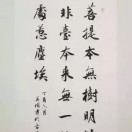 菩提本無樹明
非臺本來無一
處惹塵埃